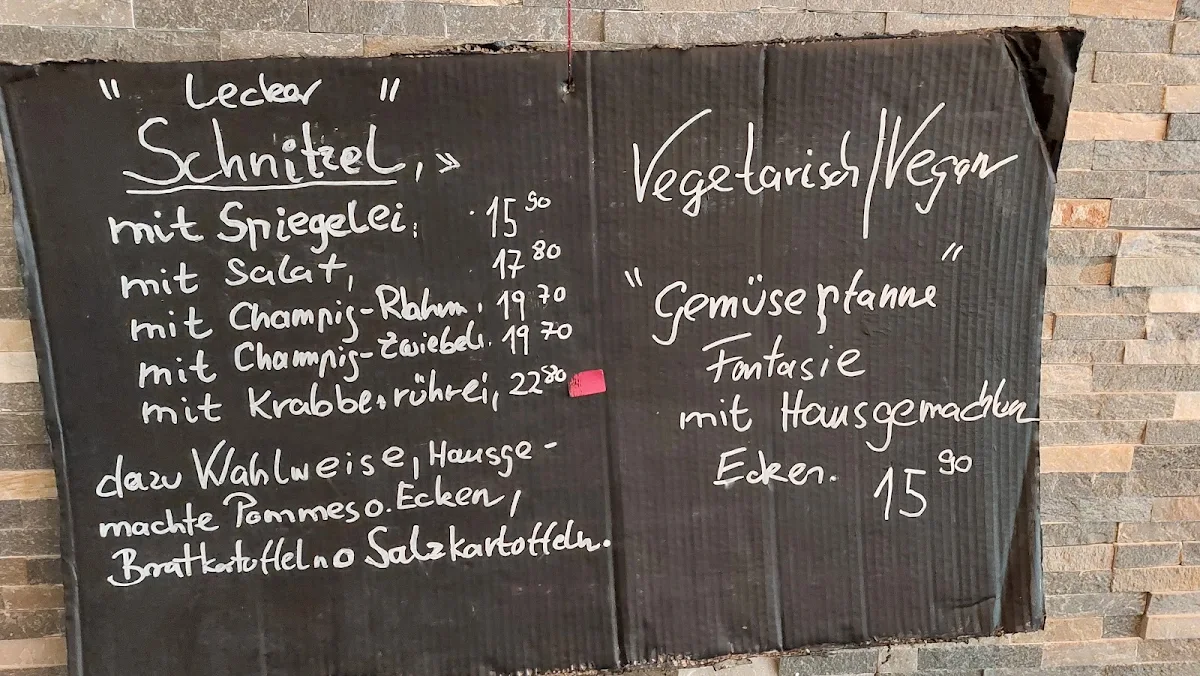 " Lecker "
Schnitzel, »
mit Spiegelei, 15 90
mit Salat, 17 80
mit Champig-Rahm, 19 70
mit Champig-Zwiebeln, 19 70
mit Krabbenrührei, 22 80
dazu Wahlweise, Hausge-
machte Pommes o. Ecken,
Bratkartoffeln o Salzkartoffeln.
Vegetarisch/Vegan
" Gemüsepfanne "
Fantasie
mit Hausgemachten
Ecken. 15 90